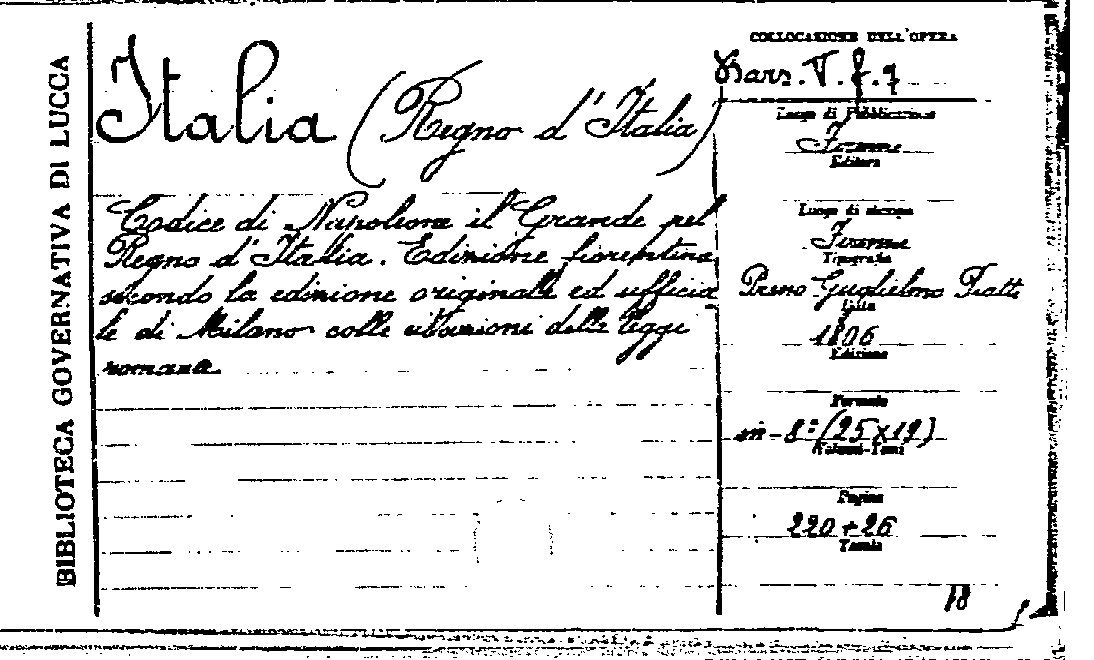 BIBLIOTECA GOVERNATIVA DI LUCCA
Italia (Regno d'Italia)
Codice di Napoleone il Grande pel
Regno d'Italia. Edizione fiorentina
secondo la edizione originale ed ufficia
le di Milano colle citazioni delle leggi
romane.
COLLOCAZIONE DELL'OPERA
Bars. V. f. 7
Luogo di Pubblicazione
Firenze
Editore
Luogo di stampa
Firenze
Tipografia
Preso Guglielmo Piatti
1806
Edizione
Formato
in-8º (25x19)
Volumi-Tomi
Pagine
220+26
Tavole
18